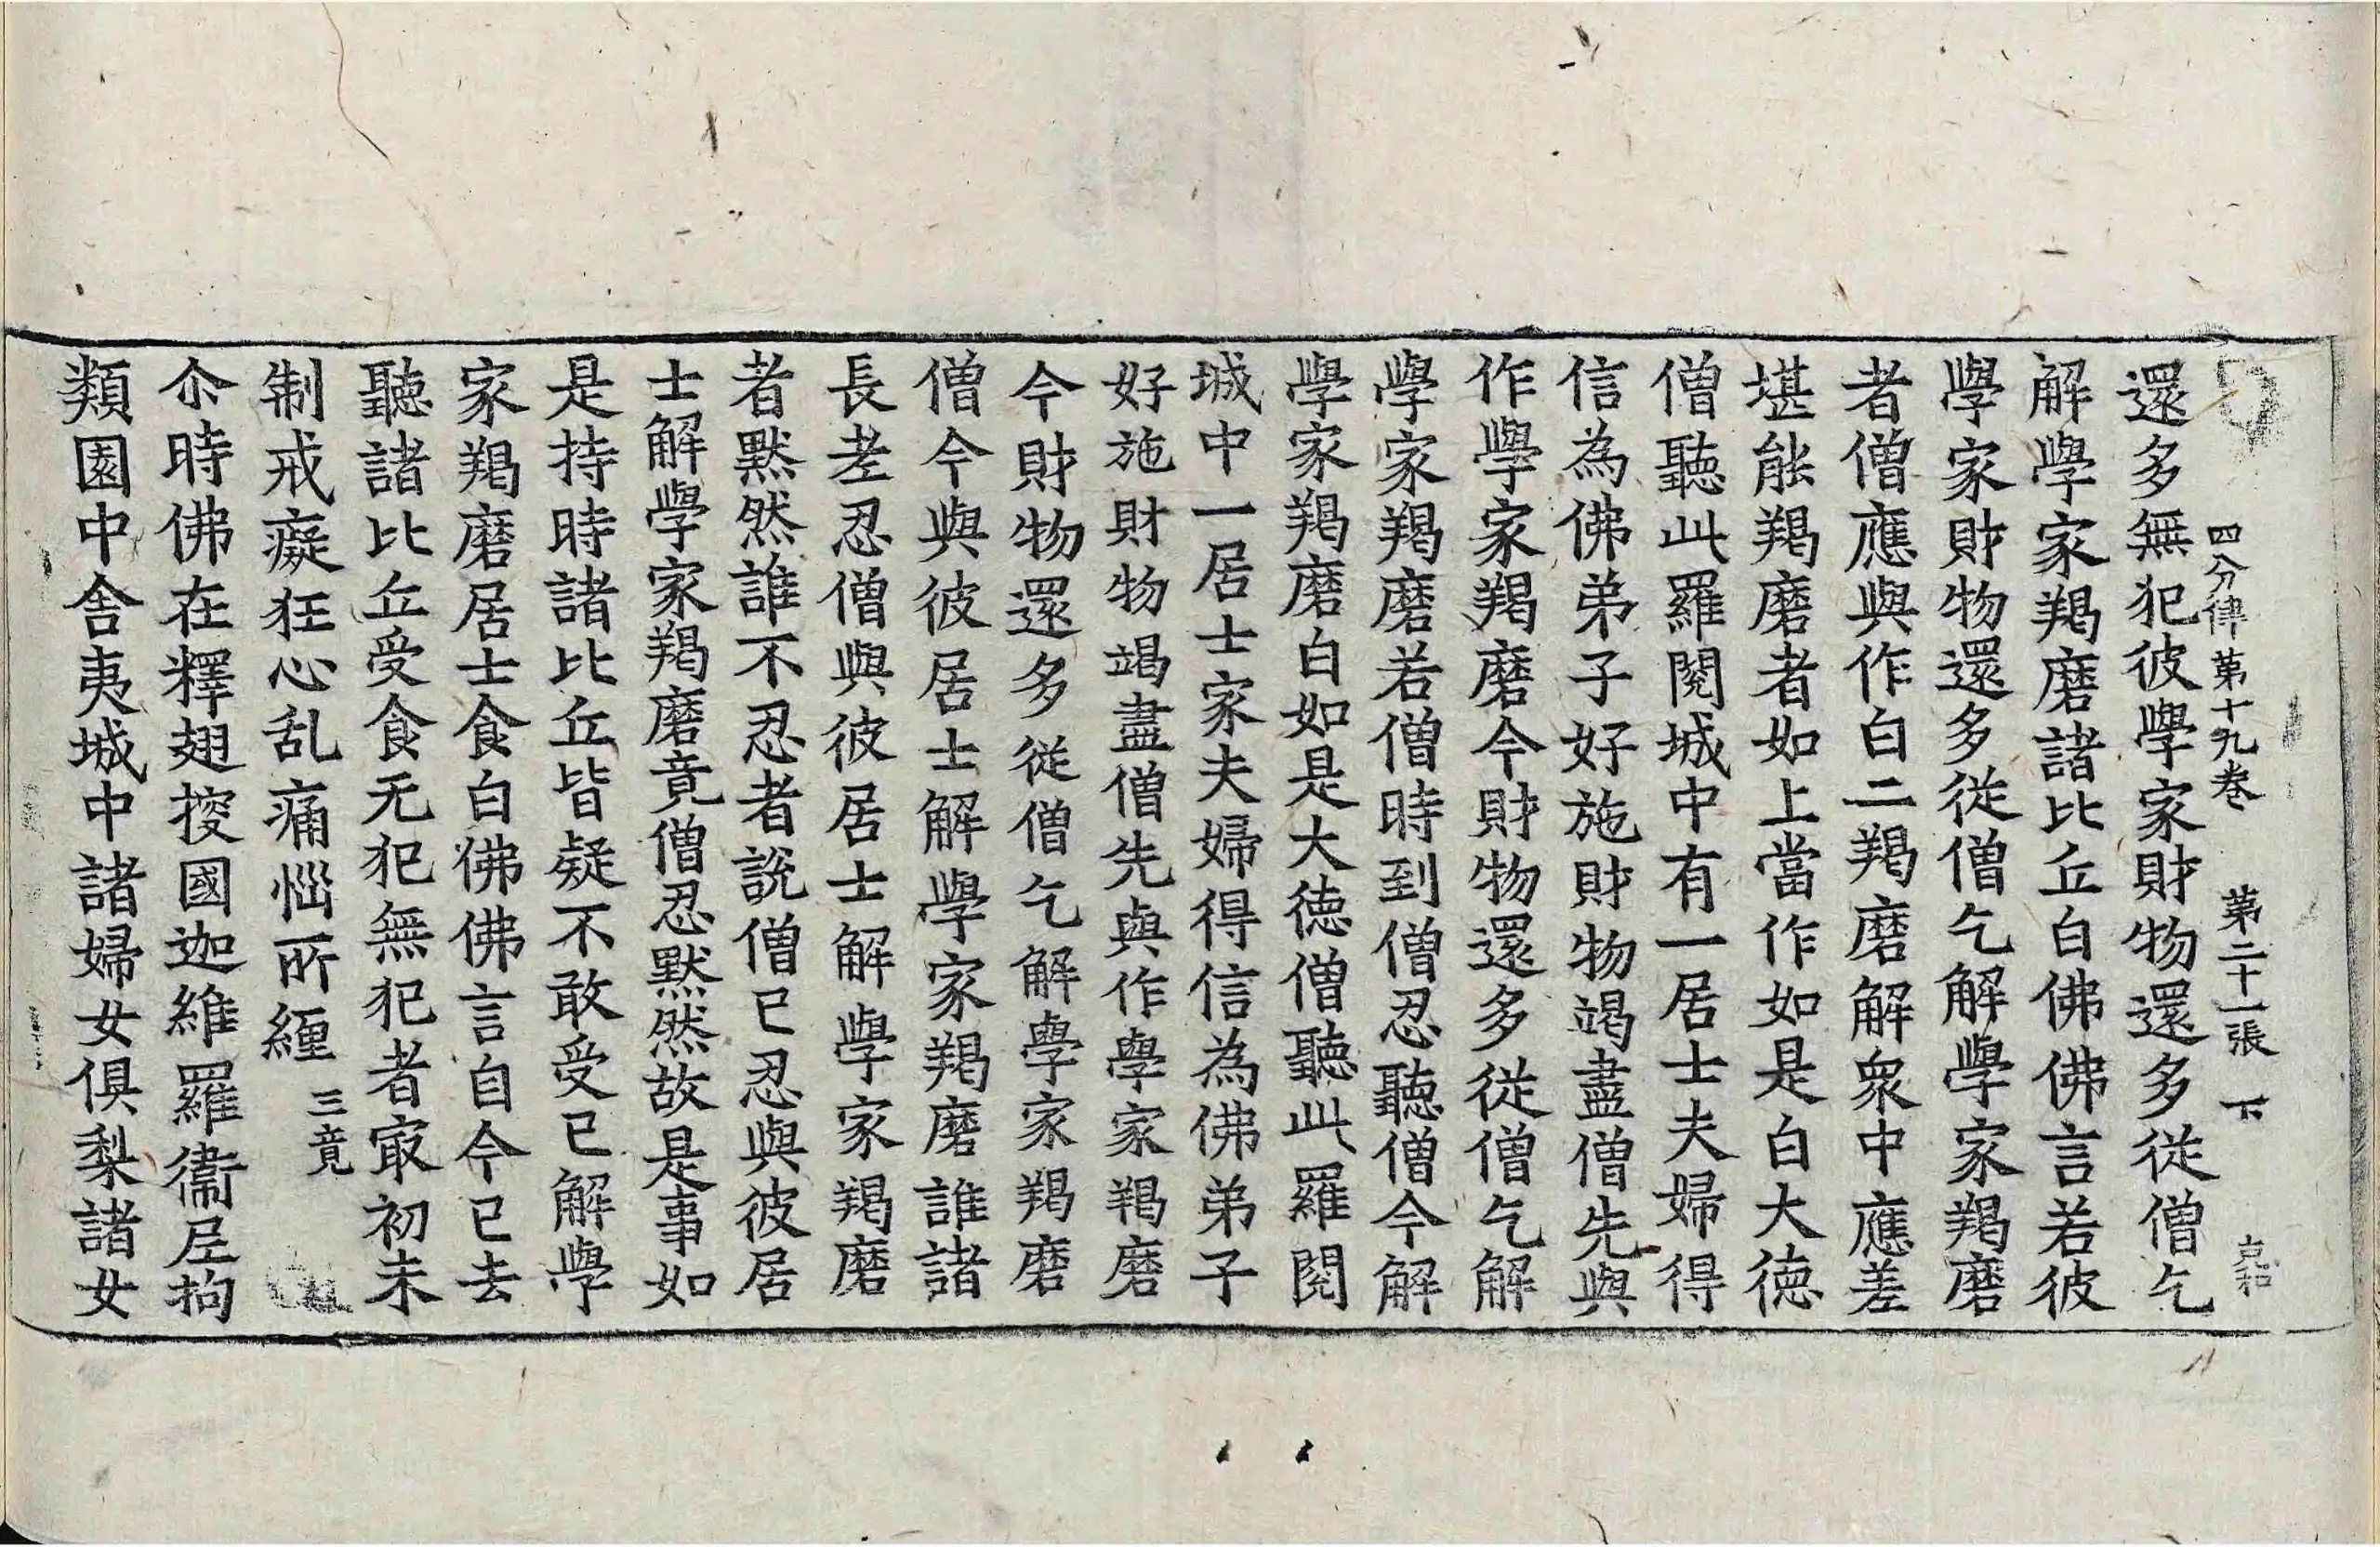 四分律第十九卷　第二十一張　下
還多無犯彼學家財物還多從僧乞
解學家羯磨諸比丘白佛佛言若彼
學家財物還多從僧乞解學家羯磨
者僧應與作白二羯磨解衆中應差
堪能羯磨者如上當作如是白大德
僧聽此羅閱城中有一居士夫婦得
信為佛弟子好施財物竭盡僧先與
作學家羯磨今財物還多從僧乞解
學家羯磨若僧時到僧忍聽僧今解
學家羯磨白如是大德僧聽此羅閱
城中一居士家夫婦得信為佛弟子
好施財物竭盡僧先與作學家羯磨
今財物還多從僧乞解學家羯磨
僧今與彼居士解學家羯磨誰諸
長老忍僧與彼居士解學家羯磨
者默然誰不忍者說僧已忍與彼居
士解學家羯磨竟僧忍默然故是事如
是持時諸比丘皆疑不敢受已解學
家羯磨居士食白佛佛言自今已去
聽諸比丘受食无犯無犯者㝡初未
制戒癡狂心乱痛惱所纏三竟
尒時佛在釋翅搜國迦維羅衞尼拘
類園中舍夷城中諸婦女俱梨諸女